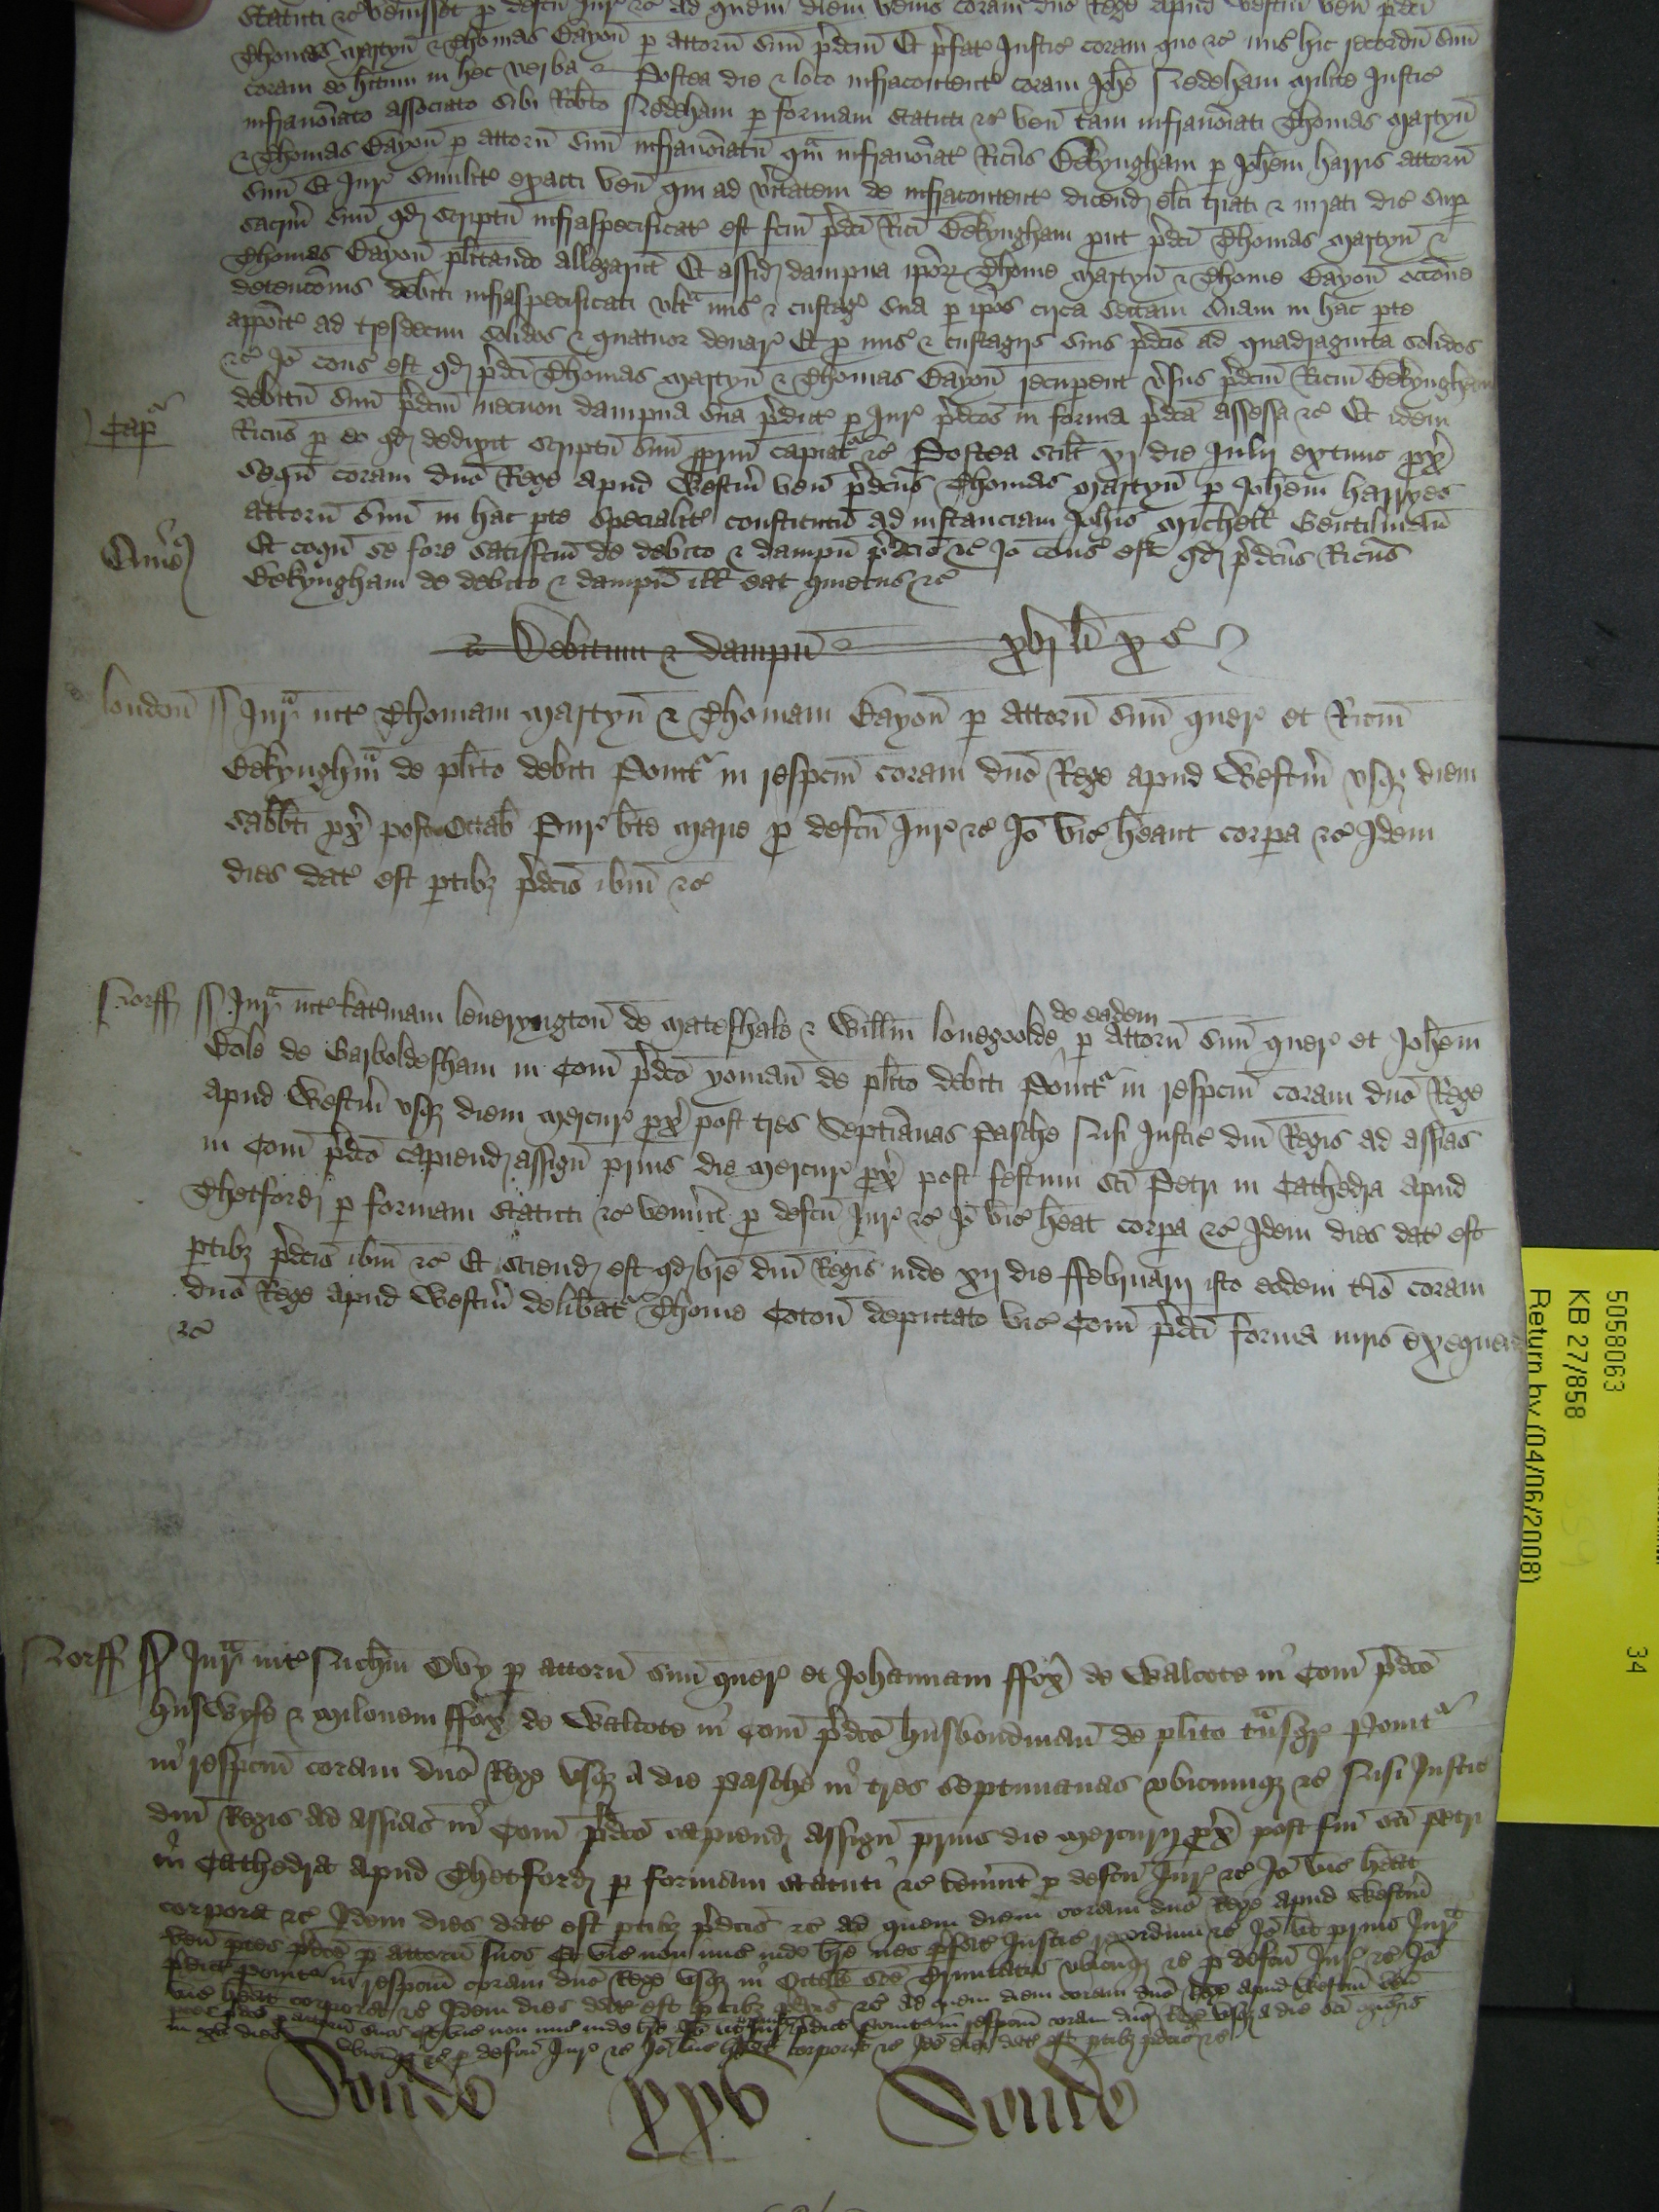 Statuti &c venisset p defcu Jur &c Ad quem diem venis coram dno Rege apud Westm ven pdci
Thomas Martyn & Thomas Bayon p attorn suu pdcm Et pfat Justic coram quo &c mis hic recordu suu
coram eo hitum in hec verba & Postea die & loco infracontent coram Johe Nedeham Milite Justic
infranoiato associato sibi Robto Nedeham p formam Statuti &c ven tam infranoiati Thomas Martyn
& Thomas Bayon p attorn suu infranoiatu qm infranoiat Ricus Bekyngham p Johem Harris attorn
suu Et Jur similit exacti ven qui ad vitatem de infracontent dicend elci triati & iurati dic sup
sacrm suu qd scriptu infraspecificat est fcm pdci Rici Bekyngham put pdci Thomas Martyn &
Thomas Bayon plitando allegarut Et assid dampna ipor Thome Martyn & Thome Bayon occone
detencois debiti infraspecificati ult mis & custag sua p ipos circa sectam suam in hac pte
appoit ad tresdecim solidos & quatuor denar Et p mis & custagijs suis pdcis ad quadraginta solidos
&c Jo cons est qd pdci Thomas Martyn & Thomas Bayon recupent vsus pdcm Ricm Bekyngham
debitu suu pdcm necnon dampna sua pdict p Jur pdcos in forma pdca assessa &c Et idem
Cap
Ricus p eo qd dedixit scriptu suu ppriu capiat &c Postea scilt xj die Julij extunc px
sequ coram dno Rege apud Westm ven pdcus Thomas Martyn p Johem Harryes
attorn suu in hac pte specialit constitutu ad instanciam Johis Michell Gentilman
Et cogn se fore satisfcm de debito & dampn pdcis &c Jo cons est qd pdcus Ricus
Bekyngham de debito & dampn ill eat quietus &c
Debitum & dampn xvj li x s
London Jur int Thomam Martyn & Thomam Bayon p attorn suu quer et Ricm
Bekynghm de plito debiti Ponit in respcm coram dno Rege apud Westm usq diem
Sabbti px post Octab Pur bte Marie p defcu Jur &c Jo vic heant corpa &c Idem
dies dat est ptibz pdcis ibm &c
Norff Jur int Katinam Leveryngton de Mateshale & Willm Lovegoolde de eadem p attorn suu quer et Johem
Cole de Garboldesham in Com pdco yoman de plito debiti Ponit in respcm coram dno Rege
apud Westm usq diem Mercur px post tres Septianas Pasche Nisi Justic dni Regis ad assias
in Com pdco capiend assign prius die Mercur px post festum sci Petri in Cathedra apud
Thetford p formam Statuti &c venint p defcu Jur &c Jo vic heat corpa &c Idem dies dat est
ptibz pdcis ibm &c Et sciend est qd bre dni Regis inde xij die Februarij isto eodem tio coram
dno Rege apud Westm delibat Thome Coton deputato vic Com pdci forma iuris exequend
&c
Norff Jur int Nichm Oby p attorn suu quer et Johannam ffox de Walcote in Com pdco
huswyfe & Milonem ffox de Walcote in Com pdco husbondman de plito tnsgr Ponit
in respcm coram dno Rege usq a die Pasche in tres septimanas ubicumq &c Nisi Justic
dni Regis ad assias in Com pdco capiend assign prius die Mercurij px post fm sci Petri
in Cathedra apud Thetford p formam Statuti &c venint p defcu Jur &c Jo vic heat
corpora &c Idem dies dat est ptibz pdcis &c Ad quem diem coram dno Rege apud Westm
ven ptes pdce p attorn suos Et vic non mis inde bre nec pfat Justic recordum &c Jo ut prius Jur
pdict ponit in respcm coram dno Rege usq in Octab sce Trinitatis ubicuq &c p defcu Jur &c Jo
vic heat corpora &c Idem dies dat est ptibz pdcis &c Ad quem diem coram dno Rege apud Westm ven
ptes pdce p attorn suos Et vic non mis inde bre pdict ponit in respcm coram dno Rege usq a die sci Michis
in xv dies ubicuq &c p defcu Jur &c Jo vic heat corpora &c Idem dies dat est ptibz pdcis &c
xxv
5058063
KB 27/858
Return by (04/06/2008)
34